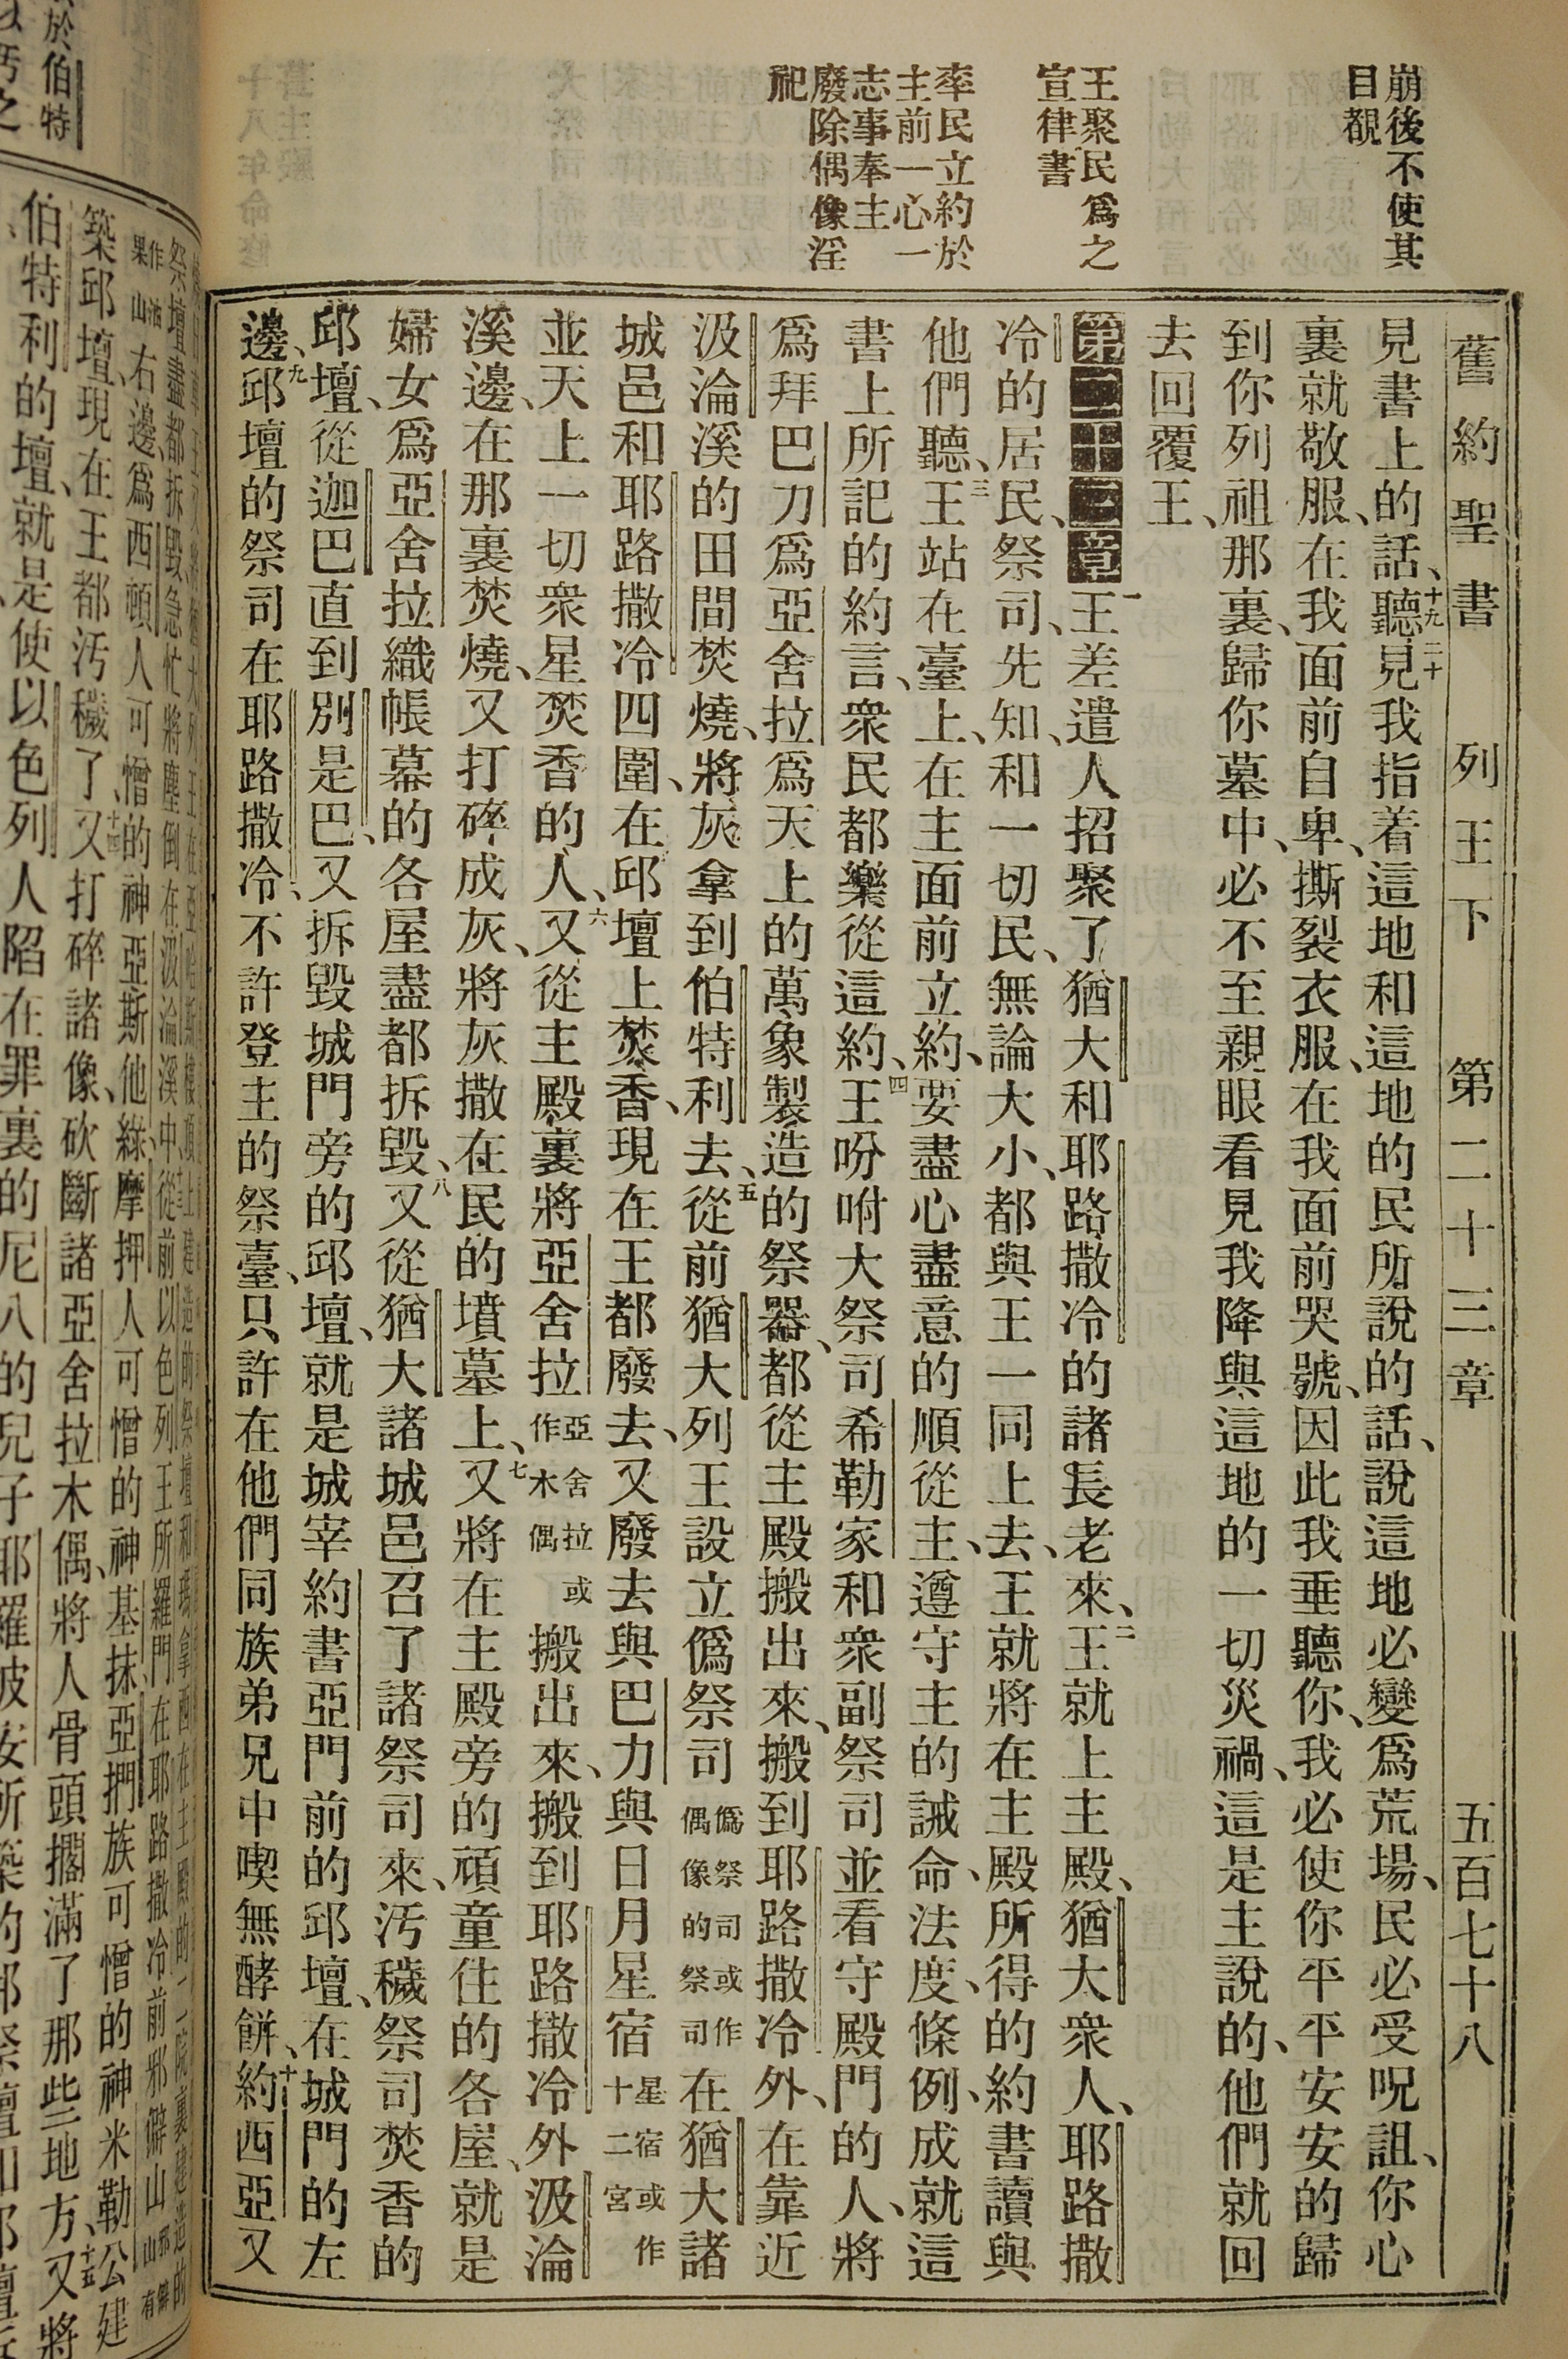 崩後不使其
目覩
王聚民爲之
宣律書
率民立約於
主前一心一
志事奉主
廢除偶像淫
祀
舊約聖書 列王下 第二十三章 五百七十八
見書上的話、十九聽見二十我指着這地和這地的民所說的話、說這地必變爲荒場、民必受呪詛、你心
裏就敬服、在我面前自卑、撕裂衣服、在我面前哭號、因此我垂聽你、我必使你平平安安的歸
到你列祖那裏、歸你墓中、必不至親眼看見我降與這地的一切災禍、這是主說的、他們就回
去回覆王、
第二十三章 一王差遣人招聚了猶大和耶路撒冷的諸長老來、二王就上主殿、猶大衆人、耶路撒
冷的居民、祭司、先知、和一切民、無論大小、都與王一同上去、王就將在主殿所得的約書讀與
他們聽、三王站在臺上、在主面前立約、要盡心盡意的順從主、遵守主的誡命、法度、條例、成就這
書上所記的約言、衆民都樂從這約、四王吩咐大祭司希勒家和衆副祭司並看守殿門的人、將
爲拜巴力爲亞舍拉爲天上的萬象製造的祭器、都從主殿搬出來、搬到耶路撒冷外、在靠近
汲淪溪的田間焚燒、將灰拿到伯特利去、五從前猶大列王設立僞祭司僞祭司或作偶像的祭司在猶大諸
城邑和耶路撒冷四圍、在邱壇上焚香、現在王都廢去、又廢去與巴力與日月星宿星宿或作十二宮
並天上一切衆星焚香的人、六又從主殿裏將亞舍拉亞舍拉或作木偶搬出來、搬到耶路撒冷外汲淪
溪邊、在那裏焚燒、又打碎成灰、將灰撒在民的墳墓上、七又將在主殿旁的頑童住的各屋、就是
婦女爲亞舍拉織帳幕的各屋盡都拆毀、八又從猶大諸城邑召了諸祭司來、汚穢祭司焚香的
邱壇、從迦巴直到別是巴、又拆毀城門旁的邱壇、就是城宰約書亞門前的邱壇、在城門的左
邊、九邱壇的祭司在耶路撒冷、不許登主的祭臺、只許在他們同族弟兄中喫無酵餅、十約西亞又
祭壇盡都拆毀、急忙將塵倒在汲淪溪中、從前以色列王所羅門在耶路撒冷前邪僻山
右邊、爲西頓人可憎的神亞斯他綠、摩押人可憎的神基抹、亞捫族可憎的神米勒公建
築邱壇、現在王都汚穢了、又打碎諸像、砍斷諸亞舍拉木偶、將人骨頭擱滿了那些地方、又將
伯特利的壇、就是使以色列人陷在罪裏的尼八的兒子耶羅波安所築的
於伯特